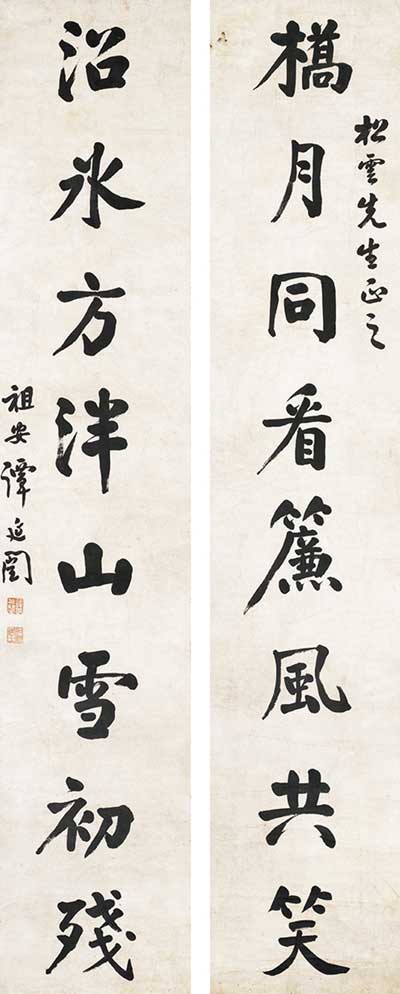 橋月同看簾風共笑
松雲先生正之
沼冰方泮山雪初殘
祖安譚延闓